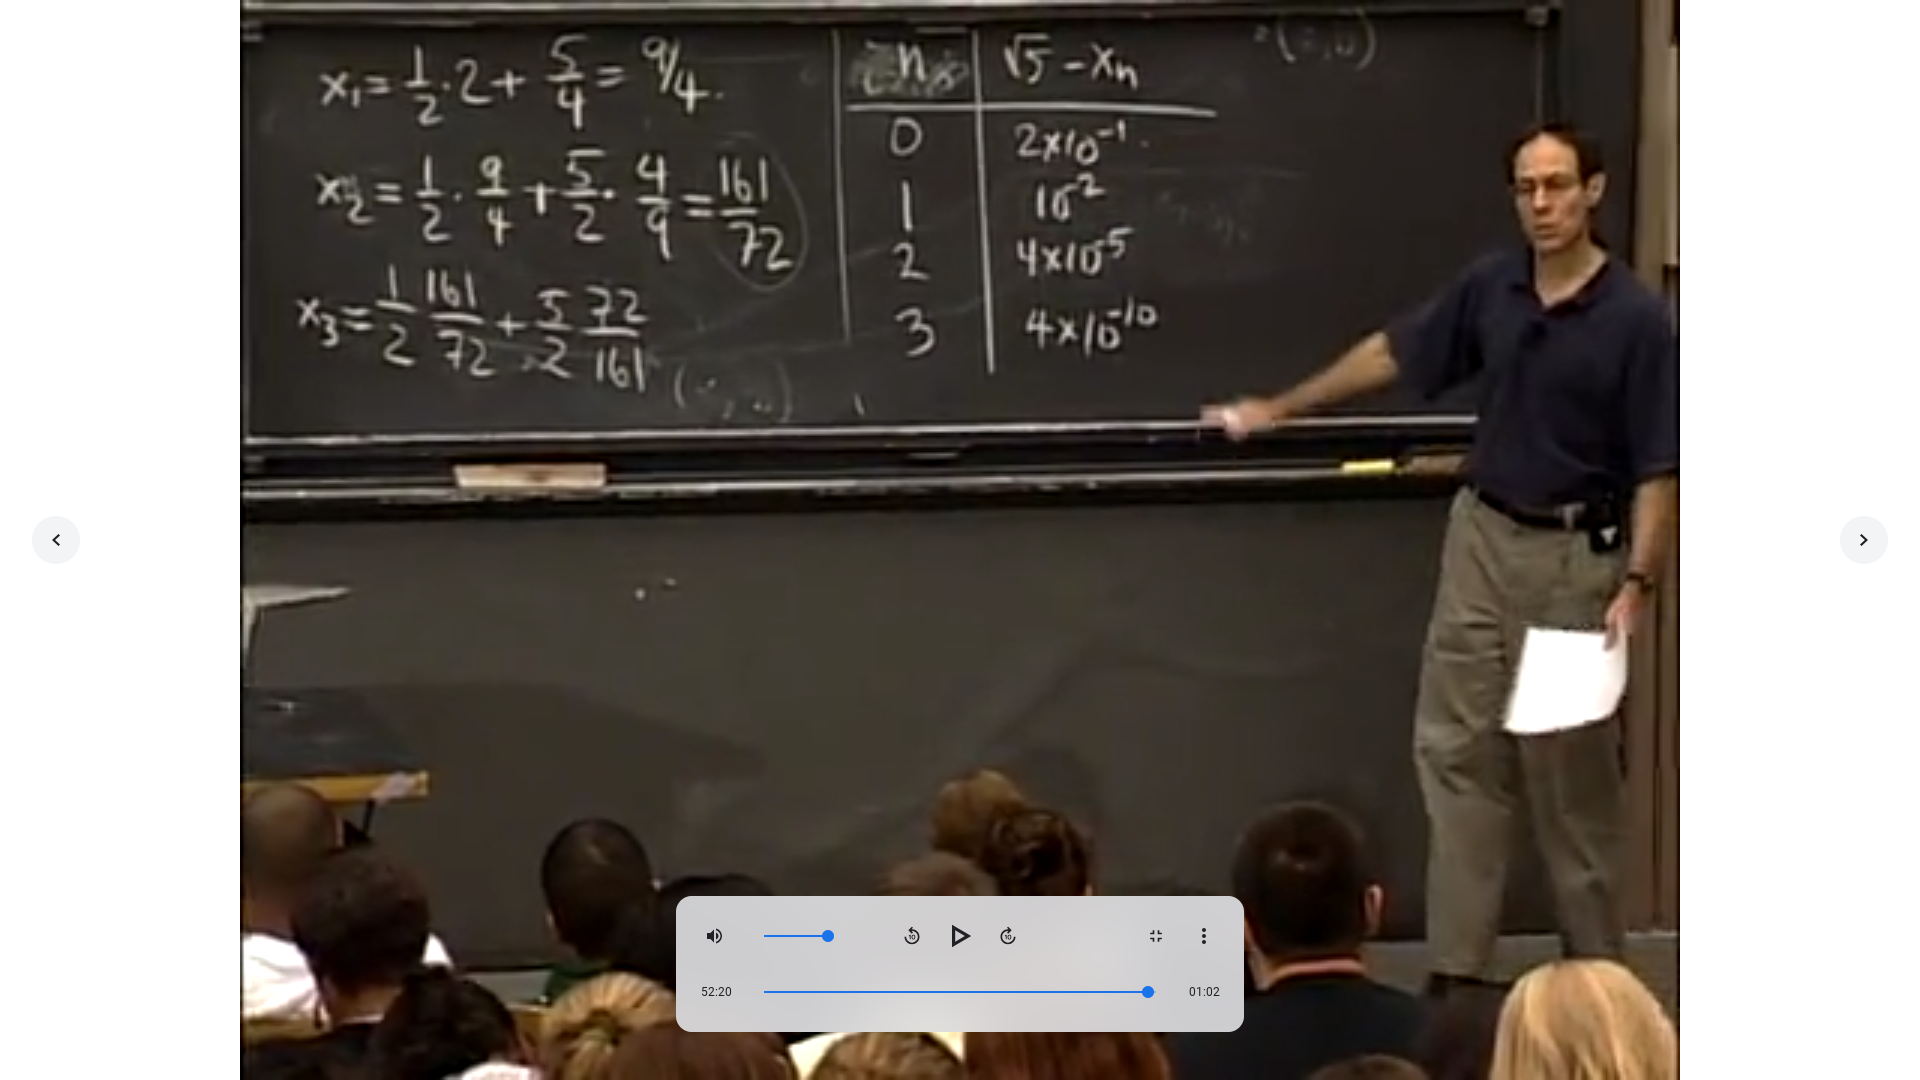 x₁ = 1/2 · 2 + 5/4 = 9/4.
x₂ = 1/2 · 9/4 + 5/2 · 4/9 = 161/72
x₃ = 1/2 161/72 + 5/2 72/161
n √5 - xₙ
0 2×10⁻¹
1 10⁻²
2 4×10⁻⁵
3 4×10⁻¹⁰
10 10
52:20 01:02